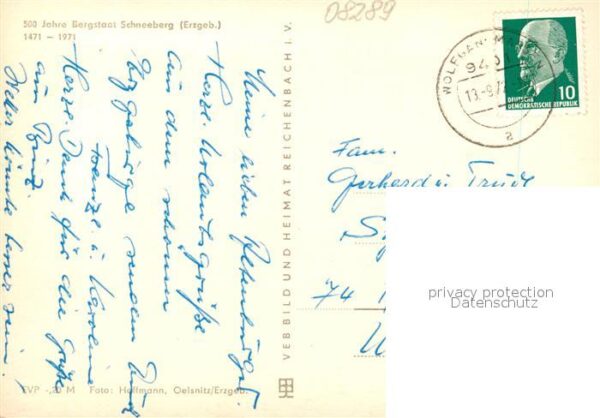 500 Jahre Bergstadt Schneeberg (Erzgeb.)
1471 – 1971
08289
Meine lieben Altenburger!
Herzl. Urlaubsgrüße
aus dem schönen
Erzgebirge senden Euch
u. Karoline
Herzl. Dank für die Grüße
aus
Wetter könnte besser sein!
VEB BILD UND HEIMAT REICHENBACH I. V.
EVP -,20 M Foto: Hoffmann, Oelsnitz/Erzgeb.
WOLFGAN
940
13.-9.7
a
10
DEUTSCHE
DEMOKRATISCHE REPUBLIK
Fam.
Gerhard u. Trude
74
privacy protection
Datenschutz